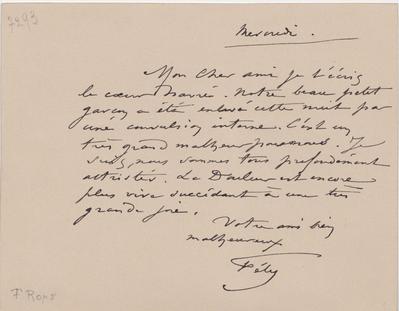 7293
Mercredi.
Mon Cher ami je t'écris
le cœur navré. Notre beau petit
garçon a été enlevé cette nuit par
une convulsion interne. C'est un
très grand malheur pour nous. Je
suis, nous sommes tous profondément
attristés. La Douleur est encore
plus vive succédant à une très
grande joie.
Votre ami bien
malheureux
Fély
F Rops